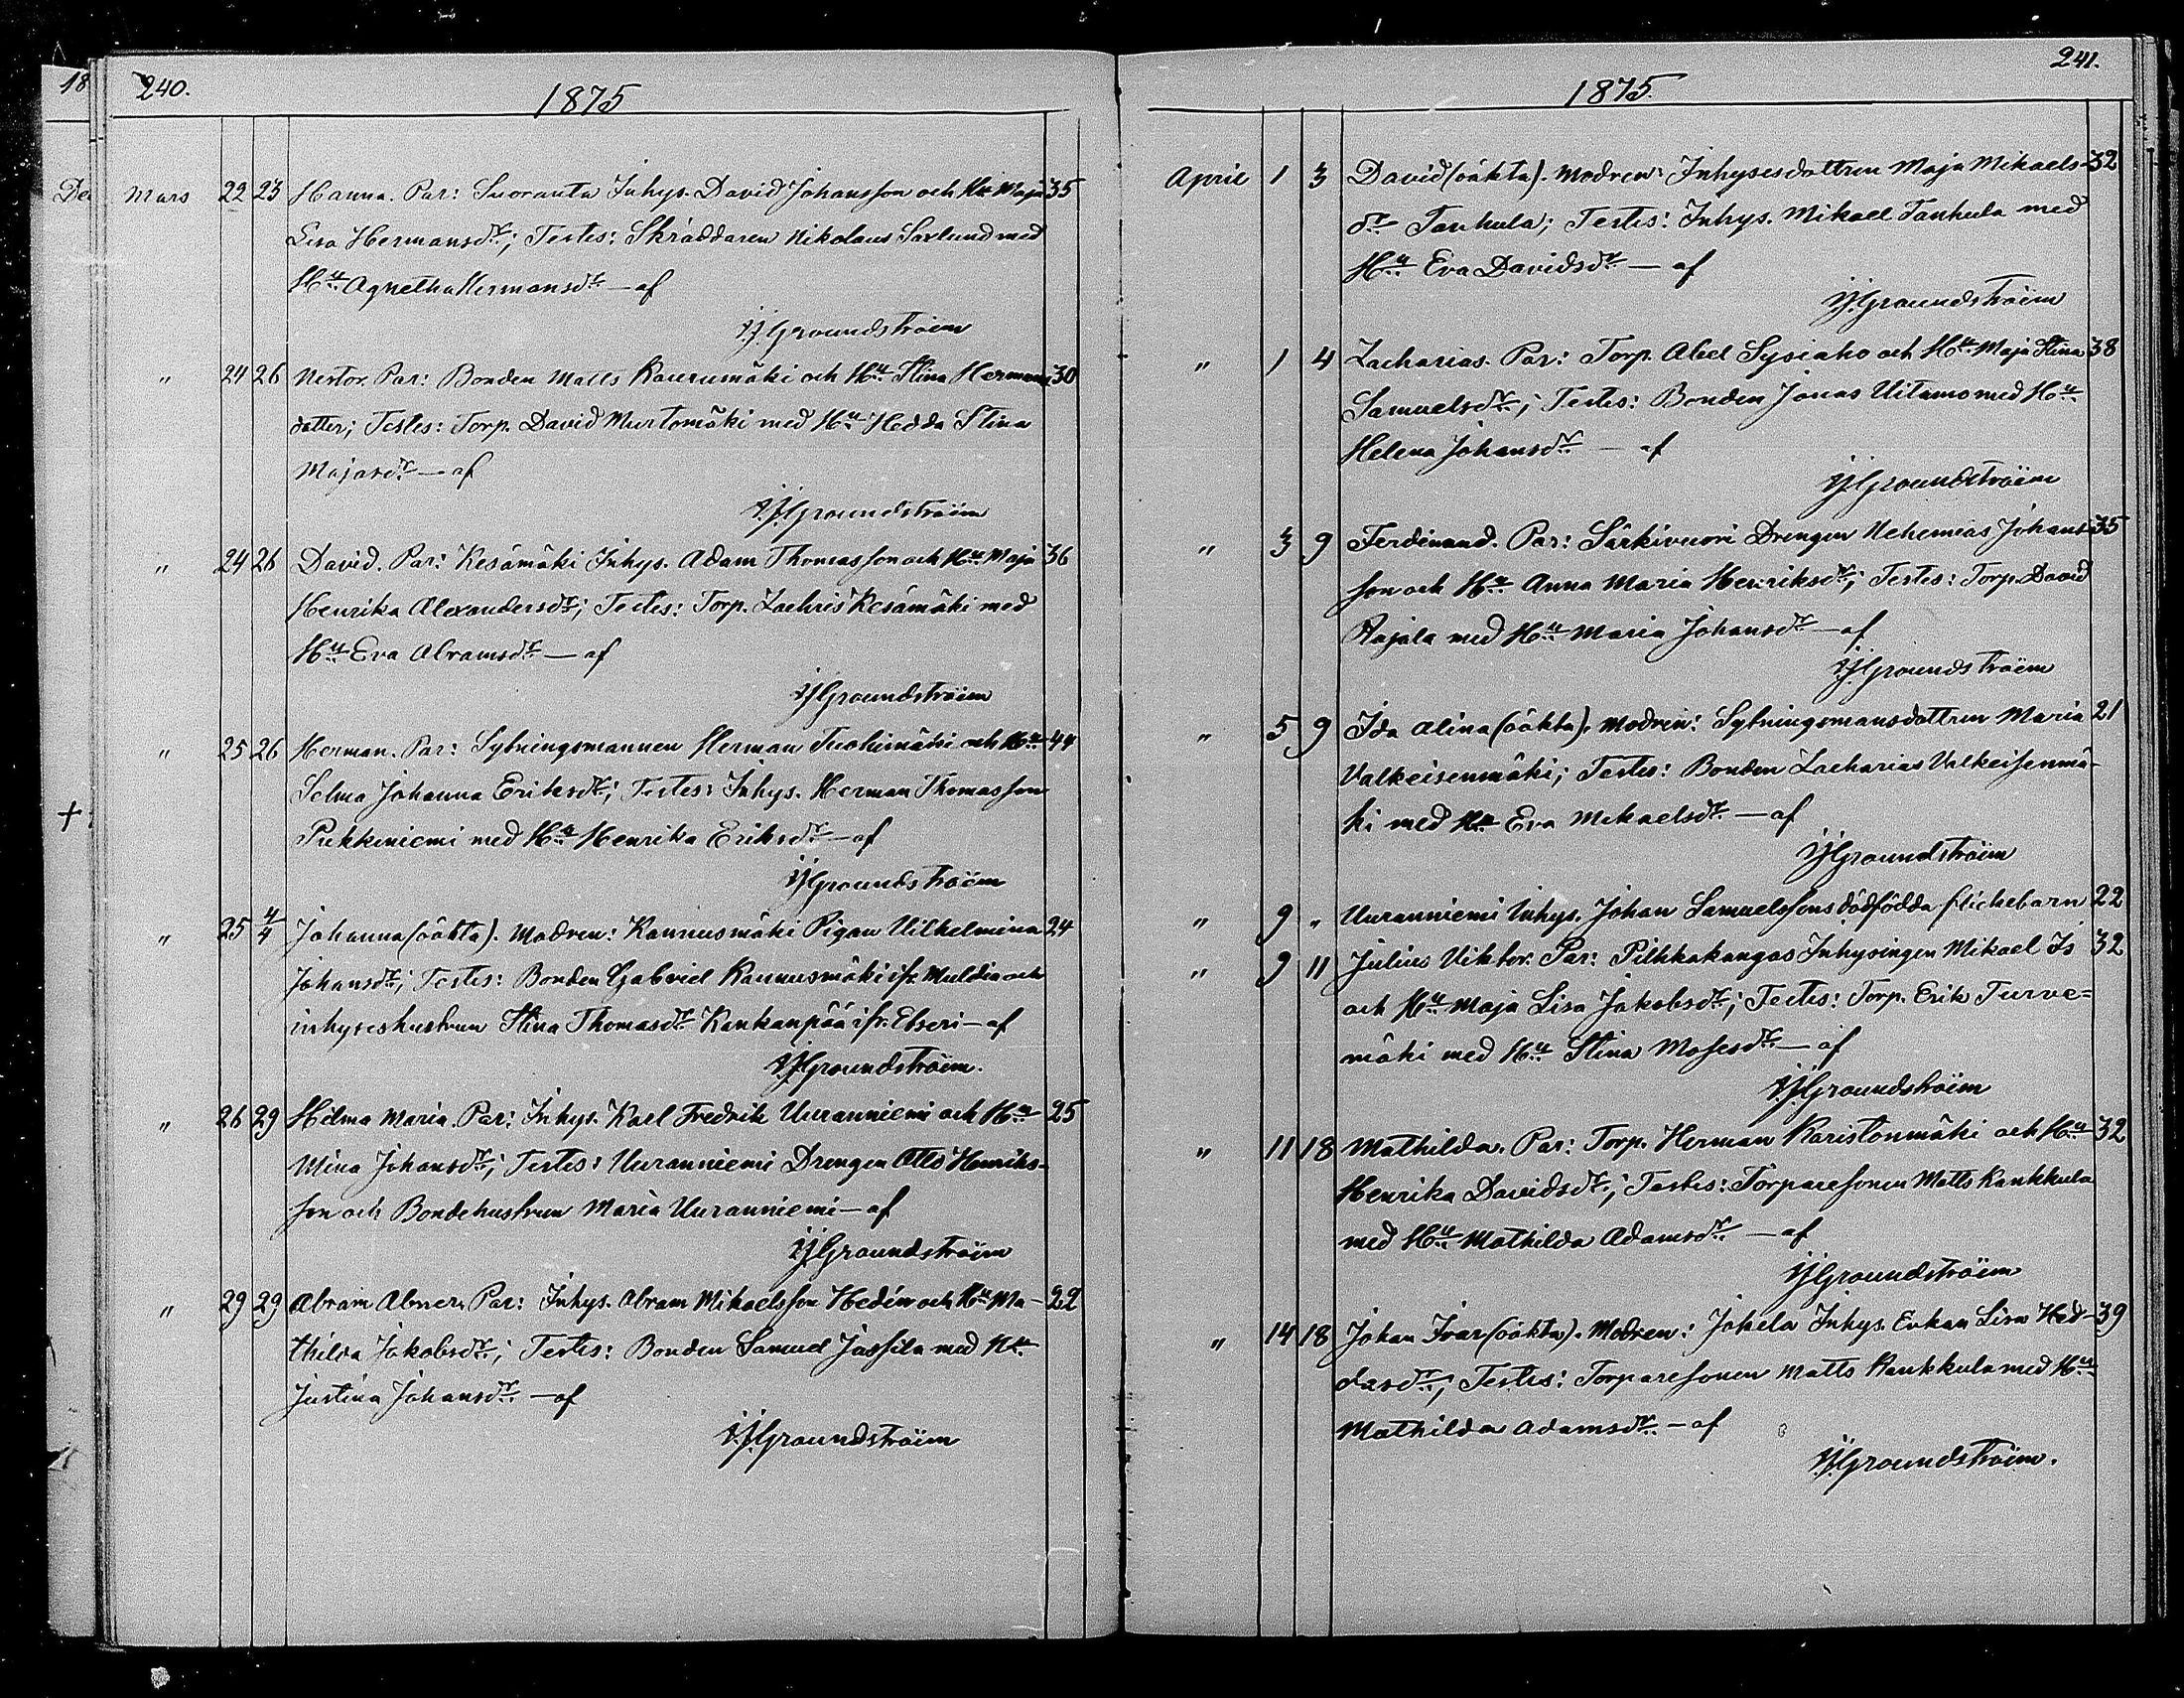 18
De
240.
1875
Mars 22 23 Hanna. Par: Suoranta Inhys. David Johansson och Hu Maja 35
Lisa Hermansdr; Testes: Skräddaren Nikolaus Saxlund med
Hu Agnetha Hermansdr — af
V.J. Groundstroëm
" 24 26 Nestor. Par: Bonden Matts Kaurumäki och Hu Stina Hermans 30
dotter; Testes: Torp. David Murtomäki med Hu Hedda Stina
Majasdr — af
V.J. Groundstroëm
" 24 26 David. Par: Kesämäki Inhys. Adam Thomasson och Hu Maja 36
Henrika Alexandersdr; Testes: Torp. Zachris Kesämäki med
Hu Eva Abramsdr — af
V.J. Groundstroëm
" 25 26 Herman. Par: Sytningsmannen Herman Tuohimäki och Hu 44
Selma Johanna Eriksdr; Testes: Inhys. Herman Thomasson
Pukkiniemi med Hu Henrika Eriksdr — af
V.J. Groundstroëm
" 25 4/4 Johanna (oäkta). Modren: Kannusmäki Pigan Vilhelmina 24
Johansdr; Testes: Bonden Gabriel Kannusmäki ifr. Muldia och
inhyseshustrun Stina Thomasdr Kankanpää ifr. Etseri — af
V.J. Groundstroëm.
" 26 29 Hilma Maria. Par: Inhys. Karl Fredrik Uuranniemi och Hu 25
Mina Johansdr; Testes: Uuranniemi Drengen Otto Henriks-
son och Bondehustrun Maria Uuranniemi — af
V.J. Groundstroëm
" 29 29 Abram Abner. Par: Inhys. Abram Mikaelsson Hedén och Hu Ma- 22
thilda Jakobsdr; Testes: Bonden Samuel Jassila med Hu
Justina Johansdr — af
V.J. Groundstroëm
241.
1875.
April 1 3 David (oäkta). Modren: Inhysesdottren Maja Mikaels- 32
dr Tanhula; Testes: Inhys. Mikael Tanhula med
Hu Eva Davidsdr — af
V.J. Groundstroëm
" 1 4 Zacharias. Par: Torp. Abel Sysiaho och Hu Maja Stina 38
Samuelsdr; Testes: Bonden Jonas Uitamo med Hu
Helena Johansdr — af
V.J. Groundstroëm
" 3 9 Ferdinand. Par: Särkivuori Drengen Nehemias Johans- 35
son och Hu Anna Maria Henriksdr; Testes: Torp. David
Rajala med Hu Maria Johansdr — af
V.J. Groundstroëm
" 5 9 Ida Alina (oäkta). Modren: Sytningsmansdottren Maria 21
Valkeisenmäki; Testes: Bonden Zacharias Valkeisenmä-
ki med Hu Eva Mikaelsdr — af
V.J. Groundstroëm
" 9 " Uuranniemi Inhys. Johan Samuelssons dödfödda flickebarn 22
" 9 11 Julius Viktor. Par: Pilkkakangas Inhysingen Mikael Is 32
och Hu Maja Lisa Jakobsdr; Testes: Torp. Erik Turve=
mäki med Hu Stina Mosesdr — af
V.J. Groundstroëm
" 11 18 Mathilda. Par: Torp. Herman Karistonmäki och Hu 32
Henrika Davidsdr; Testes: Torparesonen Matts Kankkula
med Hu Mathilda Adamsdr — af
V.J. Groundstroëm
" 14 18 Johan Ivar (oäkta). Modren: Jokela Inhys. Enkan Lisa Hed- 39
dasdr; Testes: Torparesonen Matts Kankkula med Hu
Mathilda Adamsdr — af
V.J. Groundstroëm.